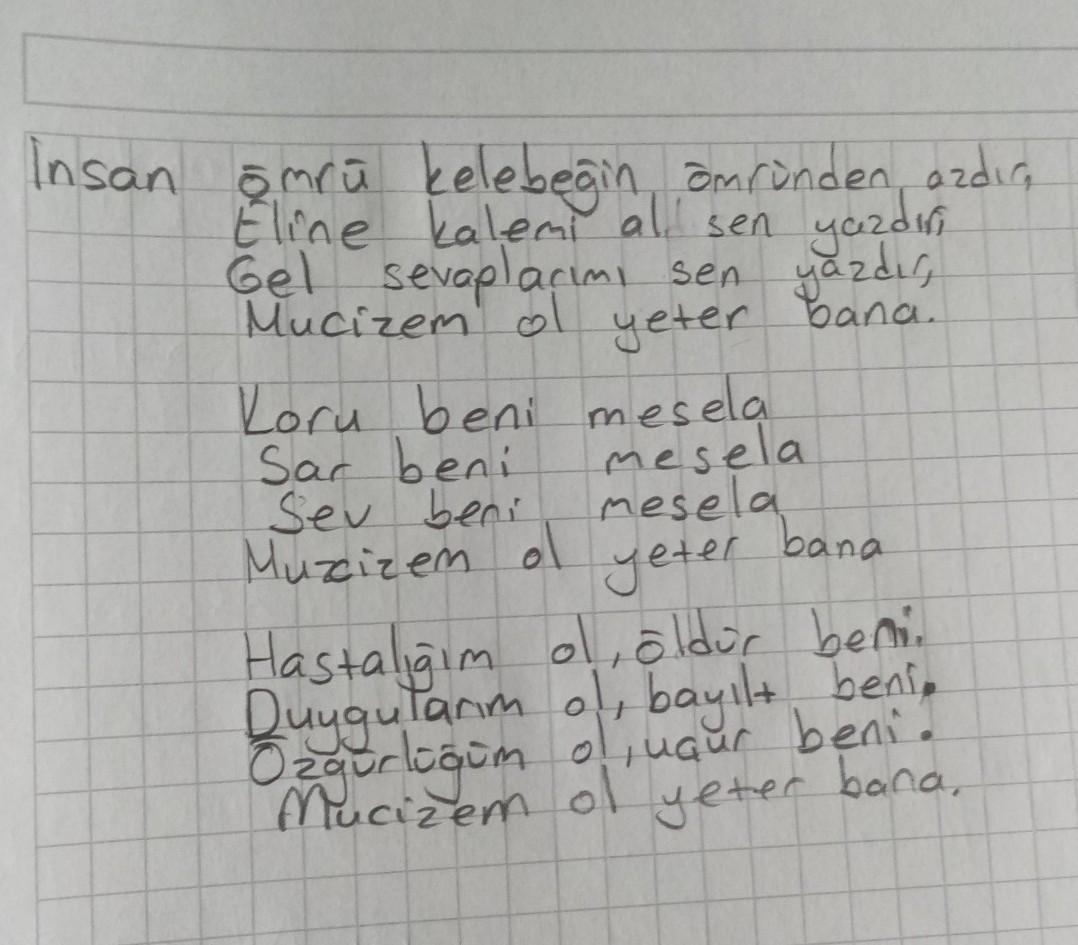 İnsan ömrü kelebeğin ömründen azdır,
Eline kalemi al sen yazdır,
Gel sevaplarımı sen yazdır,
Mucizem ol yeter bana.
Koru beni mesela
Sar beni mesela
Sev beni mesela
Mucizem ol yeter bana
Hastalığım ol, öldür beni.
Duygularım ol, bayılt beni.
Özgürlüğüm ol, uçur beni.
Mucizem ol yeter bana.